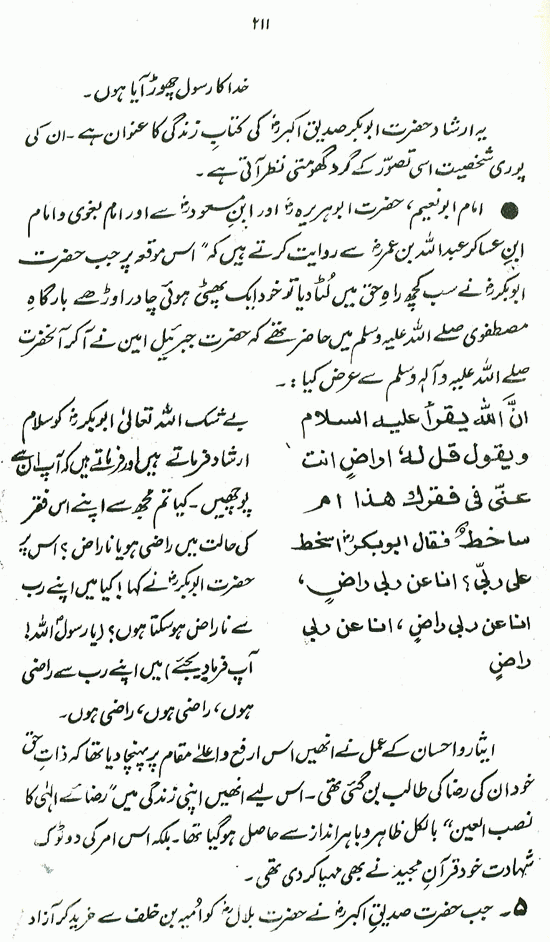 ۲۱۱
خدا کا رسول چھوڑ آیا ہوں۔
یہ ارشاد حضرت ابوبکر صدیق اکبرؓ کی کتابِ زندگی کا عنوان ہے۔ ان کی
پوری شخصیت اسی تصوّر کے گرد گھومتی نظر آتی ہے۔
● امام ابونعیم، حضرت ابوہریرہؓ اور ابن مسعودؓ سے اور امام بغوی و امام
ابن عساکر عبداللہ بن عمرؓ سے روایت کرتے ہیں کہ "اس موقعہ پر جب حضرت
ابوبکرؓ نے سب کچھ راہِ حق میں لُٹا دیا تو خود ایک پھٹی ہوئی چادر اوڑھے بارگاہِ
مصطفوی صلے اللہ علیہ وسلم میں حاضر تھے کہ حضرت جبرئیل امین نے آکر آنحضرت
صلے اللہ علیہ و آلہ وسلم سے عرض کیا:۔
انَّ الله يقرأ عليه السلام
ويقول قل له، اراضٍ انت
عنّی فی فقرك هذا ام
ساخط؟ فقال ابوبکرؓ اسخط
علی ربّی؟ انا عن ربی راضٍ،
انا عن ربی راضٍ، انا عن ربی
راضٍ
بے شک اللہ تعالیٰ ابوبکرؓ کو سلام
ارشاد فرماتے ہیں اور فرماتے ہیں کہ آپ ان سے
پوچھیں۔ کیا تم مجھ سے اپنے اس فقر
کی حالت میں راضی ہو یا ناراض؟ اس پر
حضرت ابوبکرؓ نے کہا! کیا میں اپنے رب
سے ناراض ہو سکتا ہوں؟ (یا رسول اللہ!
آپ فرما دیجئے) میں اپنے رب سے راضی
ہوں، راضی ہوں، راضی ہوں۔
ایثار و احسان کے عمل نے انھیں اس ارفع و اعلےٰ مقام پر پہنچا دیا تھا کہ ذاتِ حق
خود ان کی رضا کی طالب بن گئی تھی۔ اس لیے انھیں اپنی زندگی میں "رضائے الہٰی کا
نصب العین" بالکل ظاہر و باہر انداز سے حاصل ہوگیا تھا۔ بلکہ اس امر کی دو ٹوک
شہادت خود قرآنِ مجید نے بھی مہیا کر دی تھی۔
۵۔ جب حضرت صدیق اکبرؓ نے حضرت بلالؓ کو اُمیہ بن خلف سے خرید کر آزاد